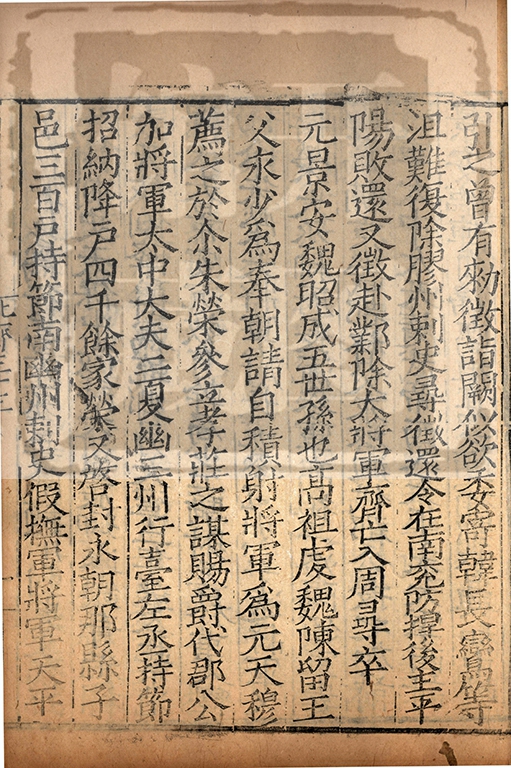 引之曾有勑徵詣闕似欲委寄韓長鸞等
沮難復除膠州刺史尋徵還令在南兖防捍後主平
陽敗還又徵赴鄴除大將軍齊亡入周尋卒
元景安魏昭成五世孫也高祖虔魏陳留王
父永少為奉朝請自積射將軍為元天穆
薦之於尒朱榮參立孝莊之謀賜爵代郡公
加將軍太中大夫二夏幽三州行臺左丞持節
招納降戶四千餘家榮又啓封永朝那縣子
邑三百戶持節南幽州刺史假撫軍將軍天平